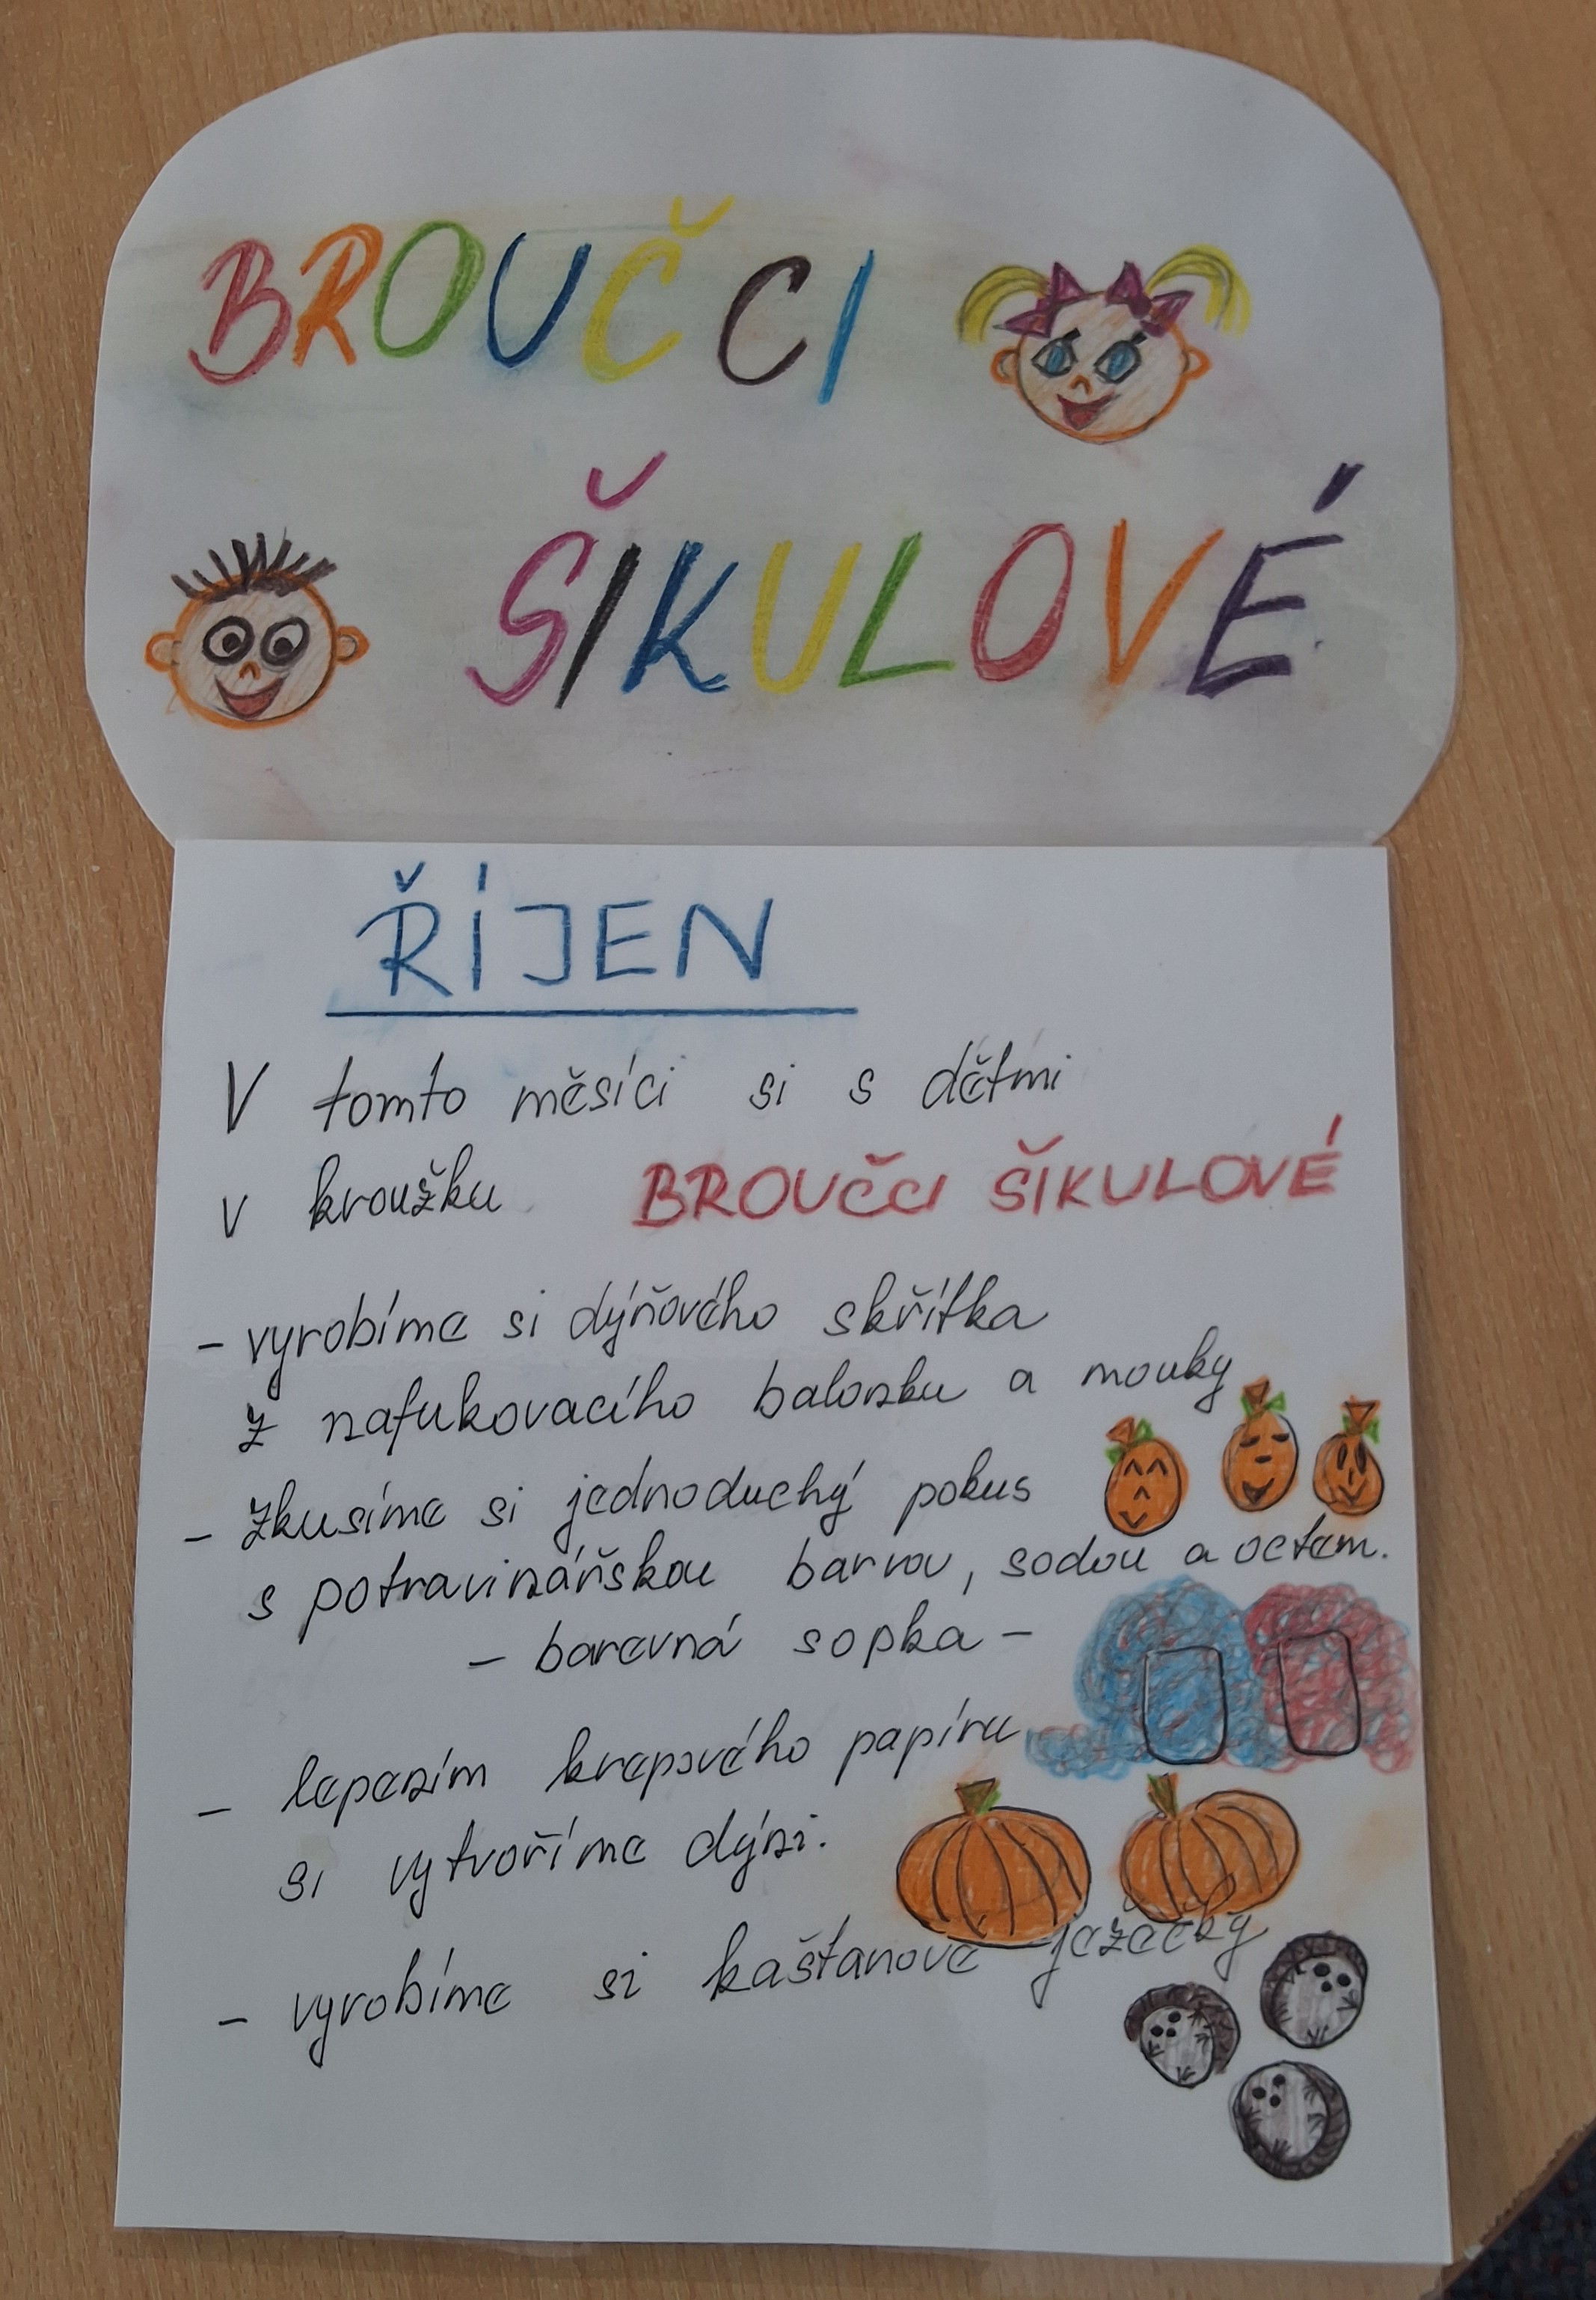 BROUČCI
ŠIKULOVÉ
ŘÍJEN
V tomto měsíci si s dětmi
v kroužku BROUČCI ŠIKULOVÉ
- vyrobíme si dýňového skřítka
z nafukovacího balonku a mouky
- zkusíme si jednoduchý pokus
s potravinářskou barvou, sodou a octem.
- barevná sopka -
- lepením krepového papíru
si vytvoříme dýni.
- vyrobíme si kaštanové ježečky